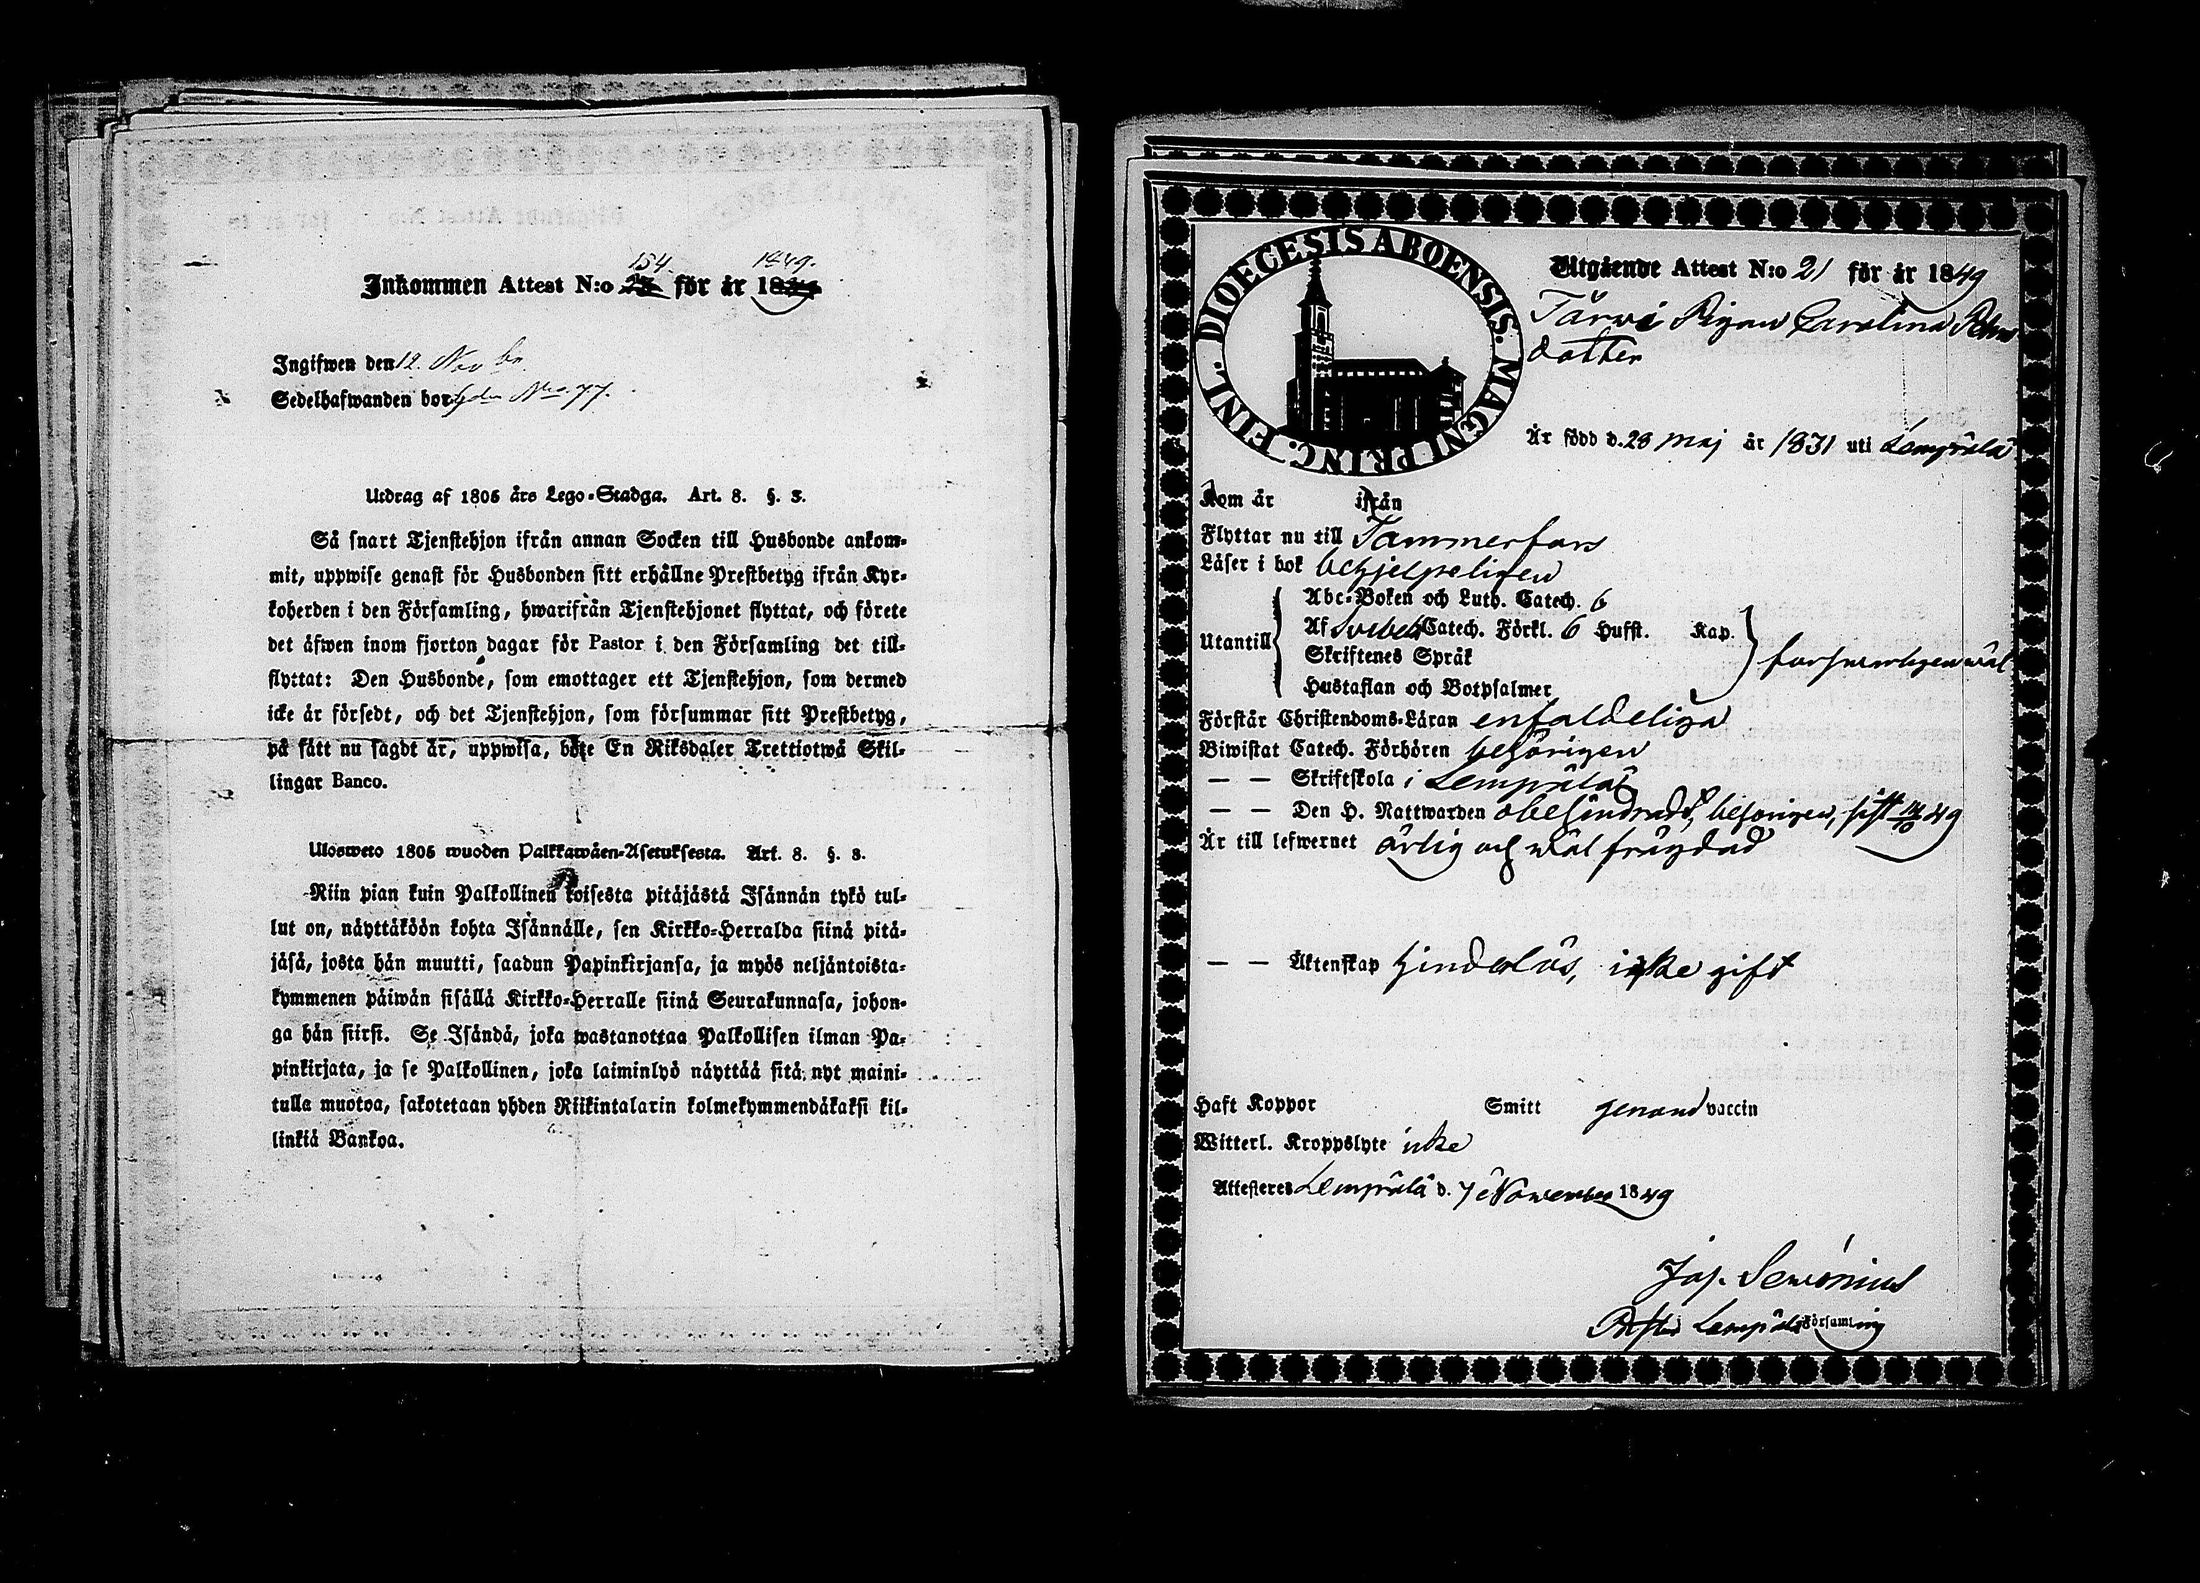 154. 1849.
Inkommen Attest N:o för år 18
Ingifwen den 12. Novbr.
Sedelhafwanden bor Nro. 77.
Utdrag af 1805 års Lego-Stadga. Art. 8. §. 3.
Så snart Tjenstehjon ifrån annan Socken till Husbonde ankom-
mit, uppwise genast för Husbonden sitt erhållne Prestbetyg ifrån Kyr-
koherden i den Församling, hwarifrån Tjenstehjonet flyttat, och förete
det äfwen inom fjorton dagar för Pastor i den Församling det till-
flyttat: Den Husbonde, som emottager ett Tjenstehjon, som dermed
icke är försedt, och det Tjenstehjon, som försummar sitt Prestbetyg,
på sätt nu sagdt är, uppwisa, böte En Riksdaler Trettiotwå Skil-
lingar Banco.
Ulosweto 1805 wuoden Palkkawäen-Asetuksesta. Art. 8. §. 3.
Niin pian kuin Palkollinen toisesta pitäjästä Isännän tykö tul-
lut on, näyttäköön kohta Isännälle, sen Kirkko-Herralda siinä pitä-
jäsä, josta hän muutti, saadun Papinkirjansa, ja myös neljäntoista-
kymmenen päiwän sisällä Kirkko-Herralle siinä Seurakunnasa, johon-
ga hän siirsi. Se Isändä, joka wastanottaa Palkollisen ilman Pa-
pinkirjata, ja se Palkollinen, joka laiminlyö näyttää sitä nyt maini-
tulla muotoa, sakotetaan yhden Riikintalarin kolmekymmendäkaksi kil-
linkiä Bankoa.
DIOECESIS ABOENSIS. MAGNI PRINC. FINL.
Utgående Attest N:o 21 för år 1849
Järvi Pigan Carolina
dotter
Är född d. 28 maj år 1831 uti Lempälä
Kom år ifrån
Flyttar nu till Tammerfors
Läser i bok behjelpeligen
Utantill
Abc-Boken och Luth. Catech. 6
Af Svebel. Catech. Förkl. 6 Hufst. Kap.
Skriftenes Språk
Hustaflan och Botpsalmer
försvarligen wäl
Förstår Christendoms-Läran enfaldeliga
Biwistat Catech. Förhören behörigen
— — Skriftskola i Lempälä
— — Den H. Nattwarden obehindrad, behörigen, sist 49
Är till lefwernet ärlig och wäl frägdad
— — Äktenskap hinderlös, icke gift
Haft Koppor Smitt genom vaccin
Witterl. Kroppslyte icke
Attesteres Lempälä d. 7 November 1849
Jos. Servonius
Pastor Lempälä Församling